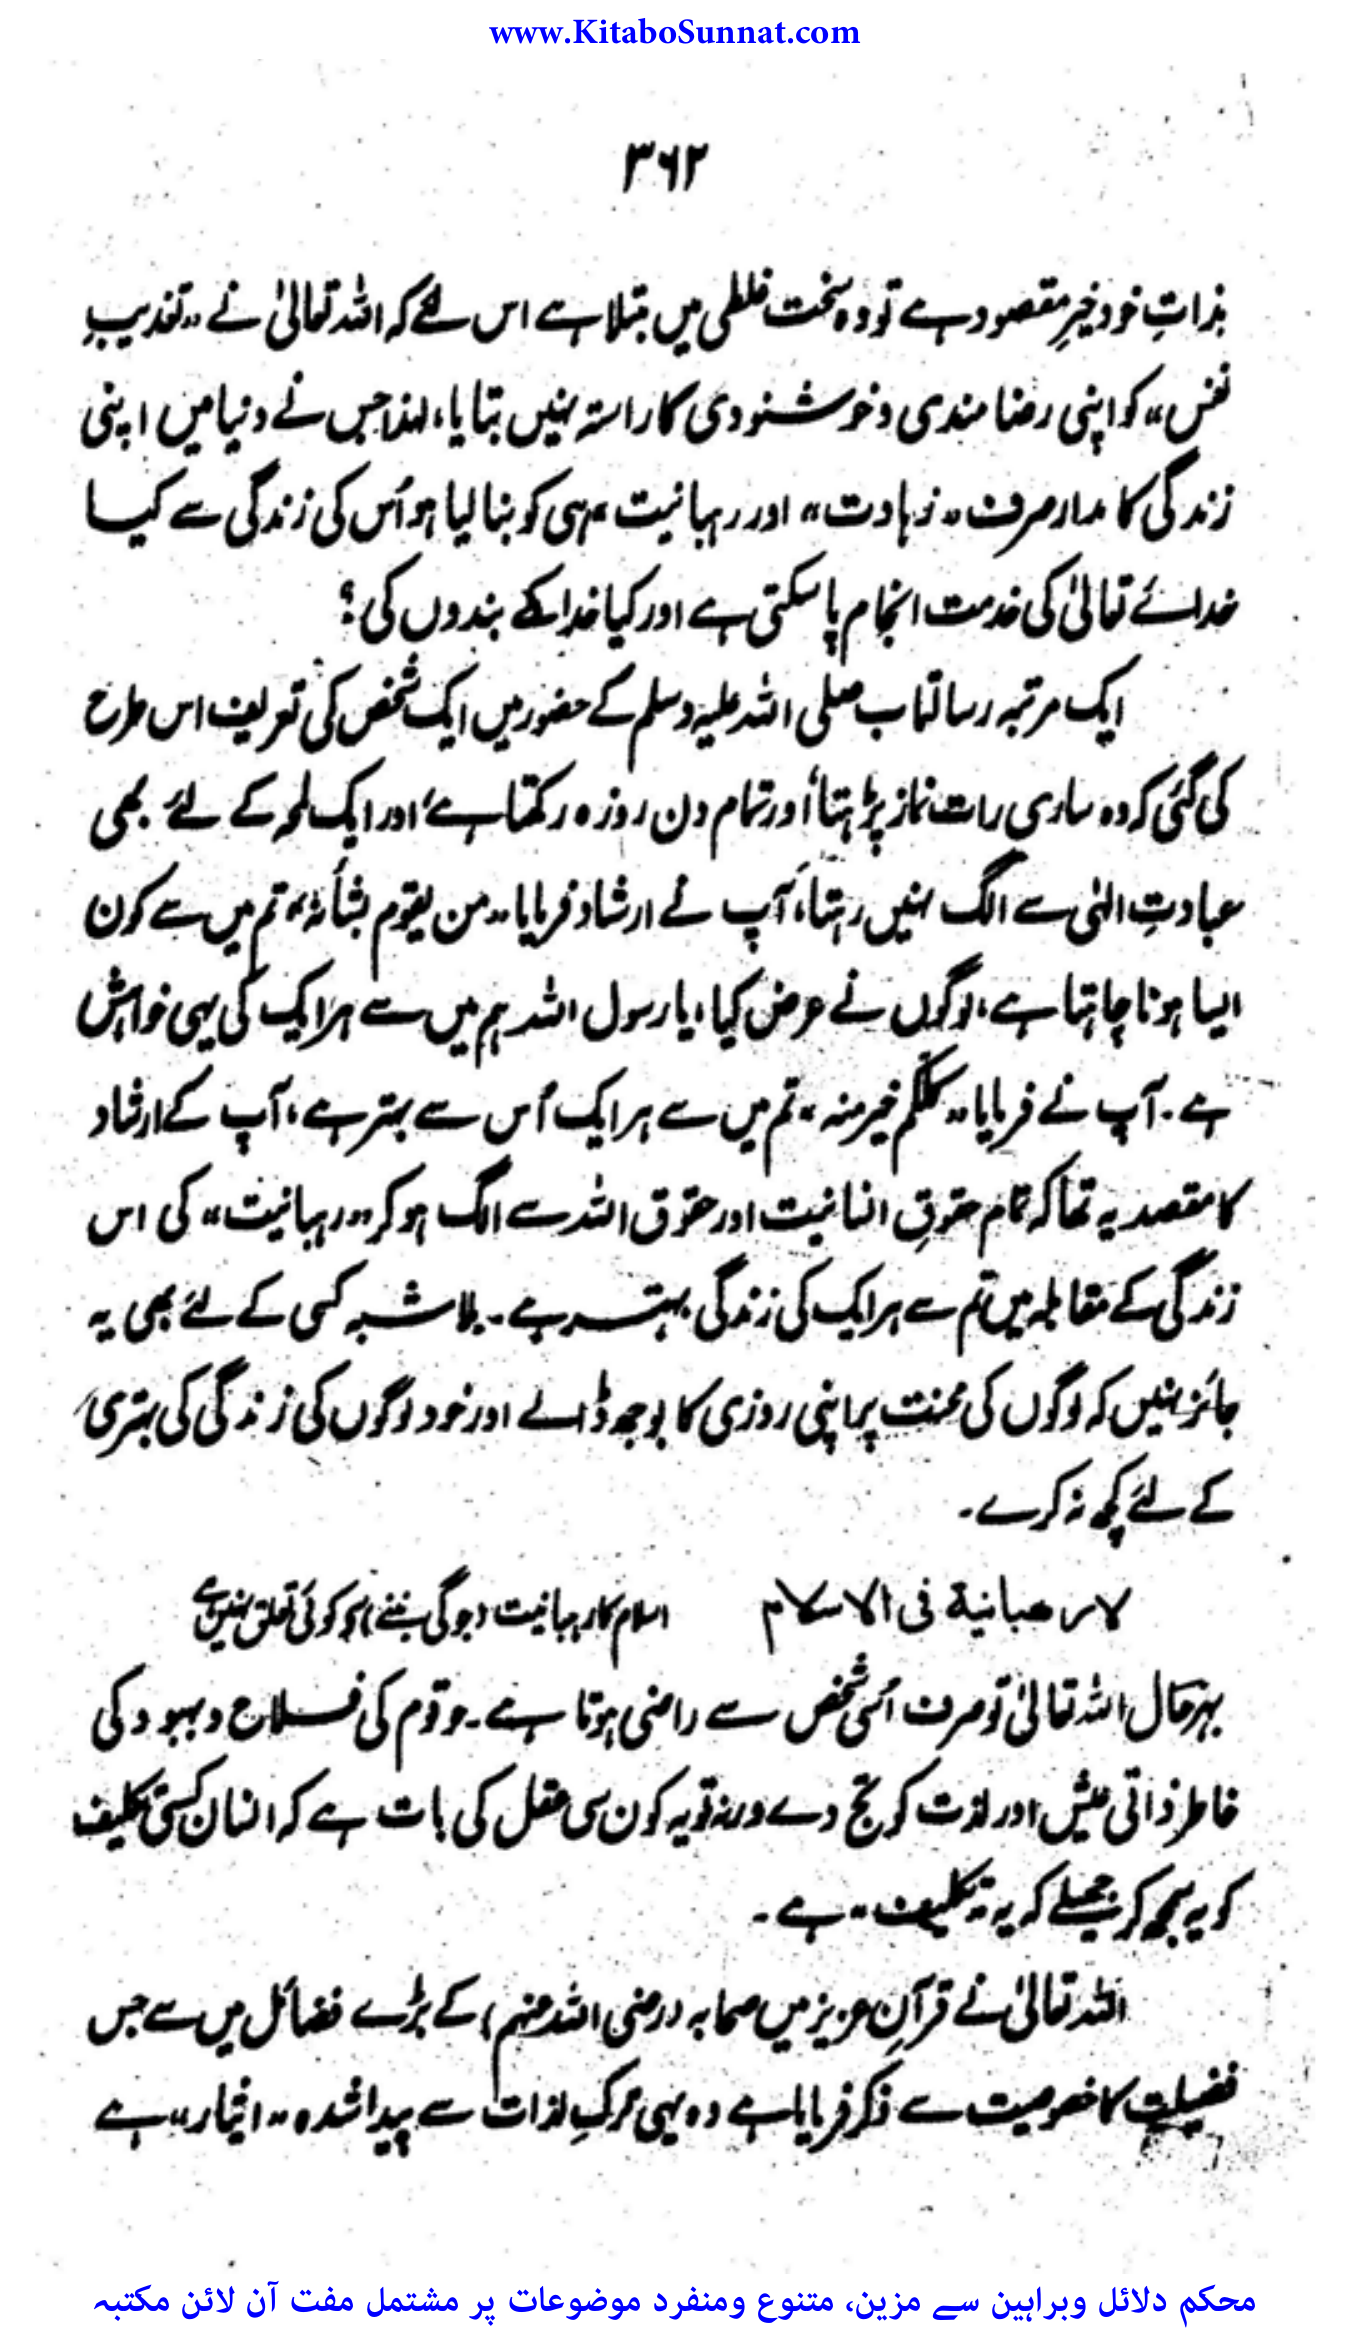 www.KitaboSunnat.com
۳۶۲
بذاتِ خود خیرِ مقصود ہے تو وہ سخت غلطی میں مبتلا ہے اس لئے کہ اللہ تعالیٰ نے "تعذیبِ
نفس" کو اپنی رضا مندی و خوشنودی کا راستہ نہیں بتایا، لہذا جس نے دنیا میں اپنی
زندگی کا مدار صرف "زہادت" اور رہبانیت" ہی کو بنا لیا ہو اُس کی زندگی سے کیا
خدائے تعالیٰ کی خدمت انجام پا سکتی ہے اور کیا خدا کے بندوں کی؟
ایک مرتبہ رسالتمآب صلی اللہ علیہ وسلم کے حضور میں ایک شخص کی تعریف اس طرح
کی گئی کہ وہ ساری رات نماز پڑہتا اور تمام دن روزہ رکھتا ہے، اور ایک لمحہ کے لئے بھی
عبادتِ الہٰی سے الگ نہیں رہتا، آپ نے ارشاد فرمایا "من یقوم بشأنہٖ" تم میں سے کون
ایسا ہونا چاہتا ہے، لوگوں نے عرض کیا، یا رسول اللہ ہم میں سے ہر ایک کی یہی خواہش
ہے۔ آپ نے فرمایا "کلکم خیر منہ" تم میں سے ہر ایک اُس سے بہتر ہے، آپ کے ارشاد
کا مقصد یہ تھا کہ تمام حقوقِ انسانیت اور حقوق اللہ سے الگ ہو کر "رہبانیت" کی اس
زندگی کے مقابلہ میں تم سے ہر ایک کی زندگی بہتر ہے۔ بلا شبہ کسی کے لئے بھی یہ
جائز نہیں کہ لوگوں کی محنت پر اپنی روزی کا بوجھ ڈالے اور خود لوگوں کی زندگی کی بہتری
کے لئے کچھ نہ کرے۔
لا رهبانية فى الاسلام اسلام کا رہبانیت (جوگی بننے) سے کوئی تعلق نہیں ہے
بہرحال اللہ تعالیٰ تو صرف اُسی شخص سے راضی ہوتا ہے۔ جو قوم کی فلاح و بہبود کی
خاطر ذاتی عیش اور لذت کو تج دے ورنہ تو یہ کون سی عقل کی بات ہے کہ انسان کسی تکلیف
کو یہ سمجھ کر جھیلے کہ یہ "تکلیف" ہے۔
اللہ تعالیٰ نے قرآنِ عزیز میں صحابہ (رضی اللہ عنہم) کے بڑے فضائل میں سے جس
فضیلت کا خصوصیت سے ذکر فرمایا ہے وہ یہی ترکِ لذات سے پیدا شدہ "ایثار" ہے
محکم دلائل وبراہین سے مزین، متنوع ومنفرد موضوعات پر مشتمل مفت آن لائن مکتبہ